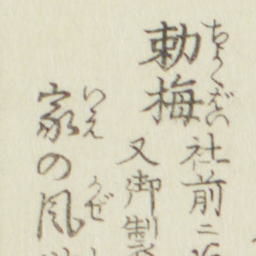 勅梅
ちよくばい
社前ニ
又御製
家の風
いへ かぜ